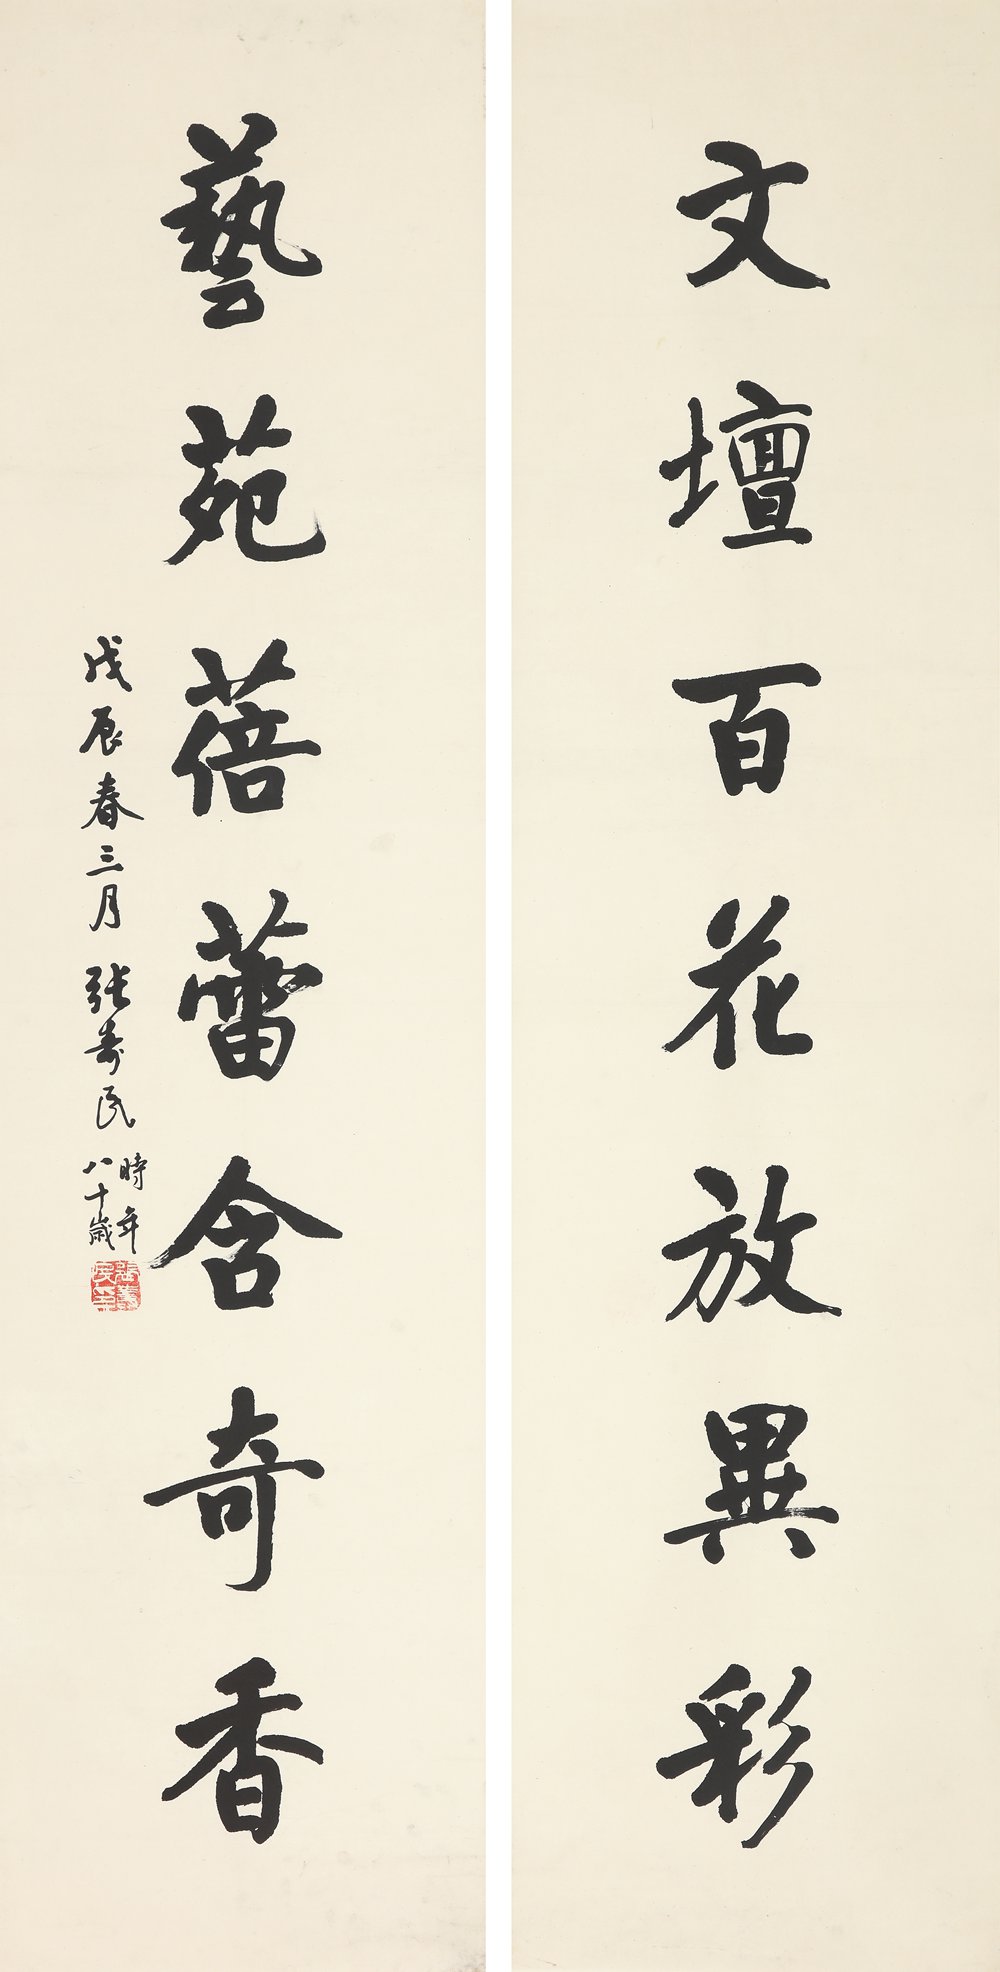 文壇百花放異彩
藝苑蓓蕾含奇香
戊辰春三月 張壽民 時年八十歲